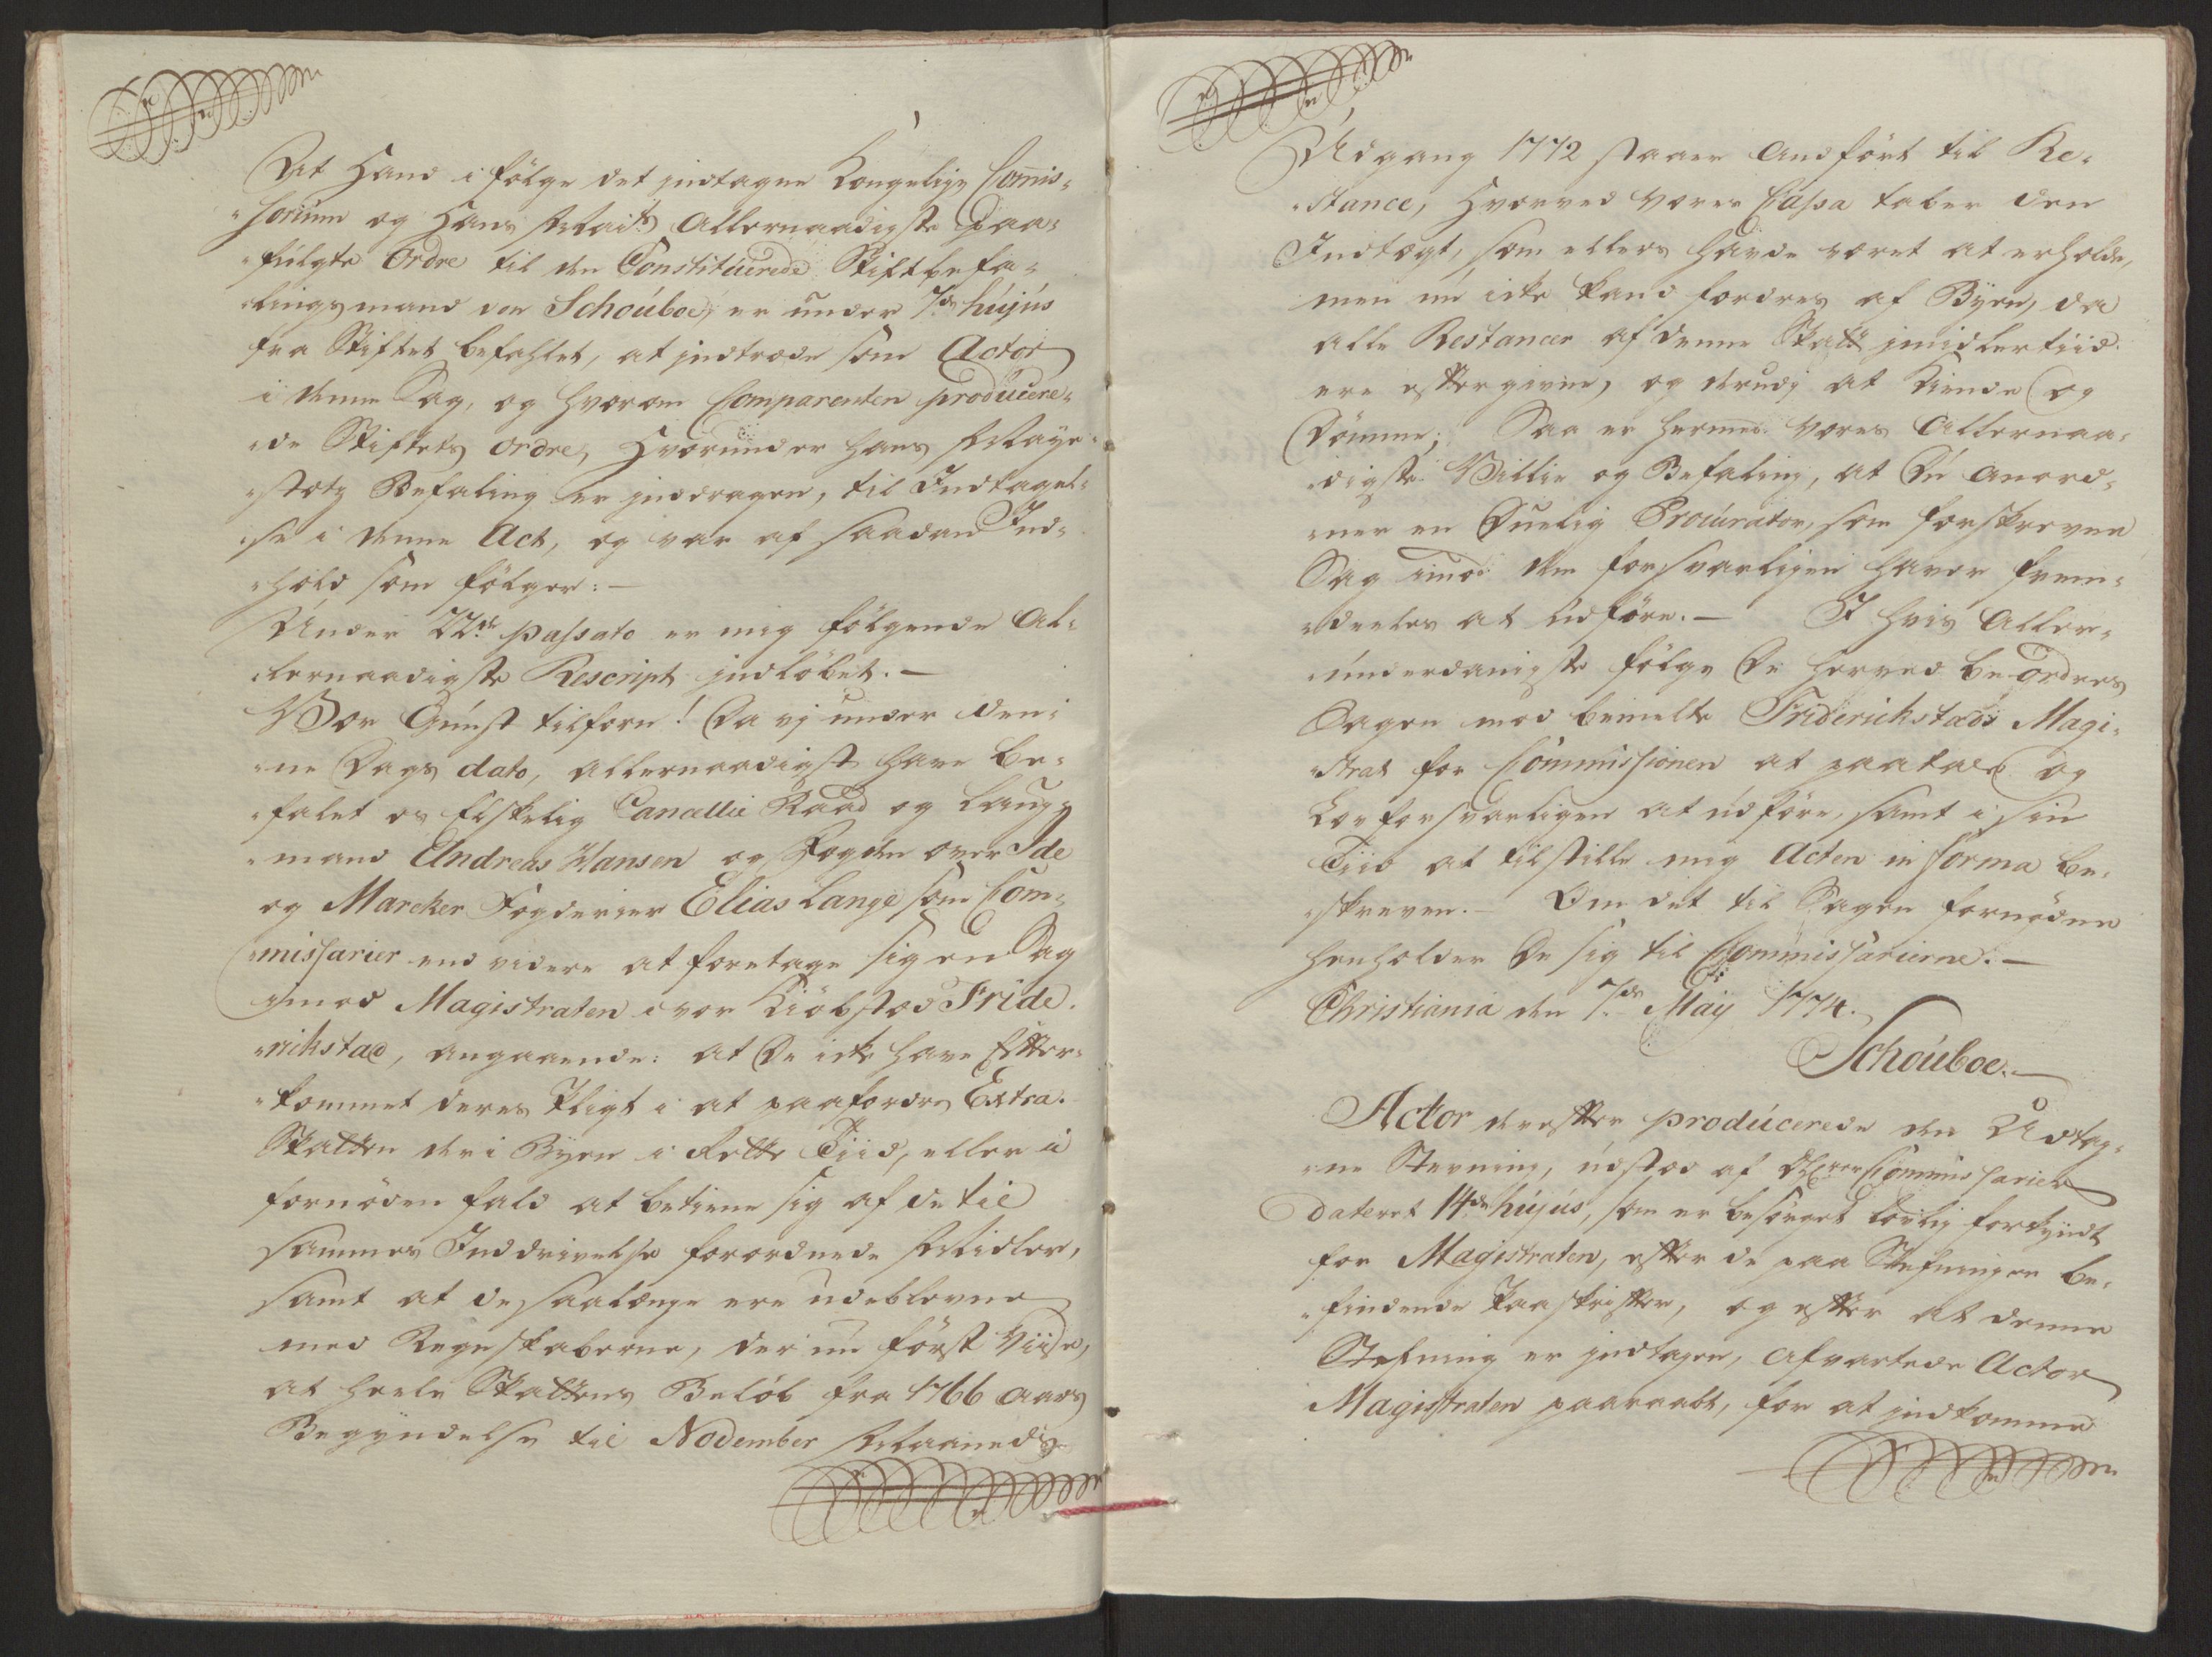 At Hand i fölge det indtagne Kongelige Com̄is-
sorium og Hans Mai:ts Allernaadigste Paa-
fulgte Ordre til den Constituerede Stiftbefa-
lingsmand von Schoúboe, er under 7de hújús
fra Stiftet befahlet, at indtræde som Actor
i denne Sag, og hvorom Comparenten producere-
de Stiftets Ordre, Hvorunder hans Maye-
stetz Befaling er inddragen, til Indtagel-
se i denne Act, og var af saadan Ind-
hold som fölger: —
Under 22de passato er mig fölgende Al-
lernaadigste Rescript indlöbet. —
Vor Gúnst tilforn! Da vj under den-
ne Dags dato, allernaadigst have be-
falet os Elskelig Cancellie Raad og Laug-
mand Andreas Hansen og Fogden over Ide
og Marcker Fogderier Elias Lange som Com-
missarier end videre at foretage sig en Sag
imod Magistraten i vor Kiöbstæd Fride-
richstad, angaaende: at De icke have Efter-
kommet deres Pligt i at paafordre Extra-
Skatten der i Byen i Rette Tiid, eller i
fornöden fald at betiene sig af de til
sammes Inddrivelse forordnede Midler,
samt at de saalænge ere udeblevne
med Regnskaberne, der nu först Viise,
at heele Skattens Belöb fra 1766 Aars
Begyndelse til November Maaneds
Udgang 1772 staaer Andfört til Re-
stance, Hvorved vores Cassa taber den
Indtægt, som ellers havde været at erholde,
men nu icke kand fordres af Byen, da
alle Restancer af denne Skatt imidlertiid
ere eftergivne, og derudj at kiende og
Dömme; Saa er hermed vores Allernaa-
digste Villie og Befaling, at Du anord-
ner en Duelig Procurator, som forskrevne
Sag imod dem forsvarligen haver frem-
deeles at udföre. — I hvis Aller-
únderdanigste fölge De herved beordres
Sagen mod bemelte Friderichstads Magi-
strat for Commissionen at paatale og
Lovforsvarligen at udföre, samt i sin
Tiid at tilstille mig Acten in forma be-
skreven. — Om det til Sagen fornödne
henholder De sig til Commissarierne. —
Christiania den 7de Maij 1774.
Schoúboe. —
Actor derefter prodúcerede den Udtag-
ne Stevning, udstæd af Hrer Commissarier
dateret 14de hújús, som er besörget lovlig forkyndt
for Magistraten, efter de paa Stefningen be-
findende Paaskrifter, og efter at denne
Stefning er indtagen, afvartede Actor
Magistraten paaraabt, for at indkomme